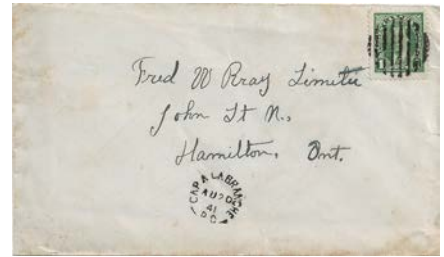 Fred W Rray Limitie
John St N.,
Hamilton, Ont.
CAP A LABRANCHE
AU 20
41
P.Q.
1